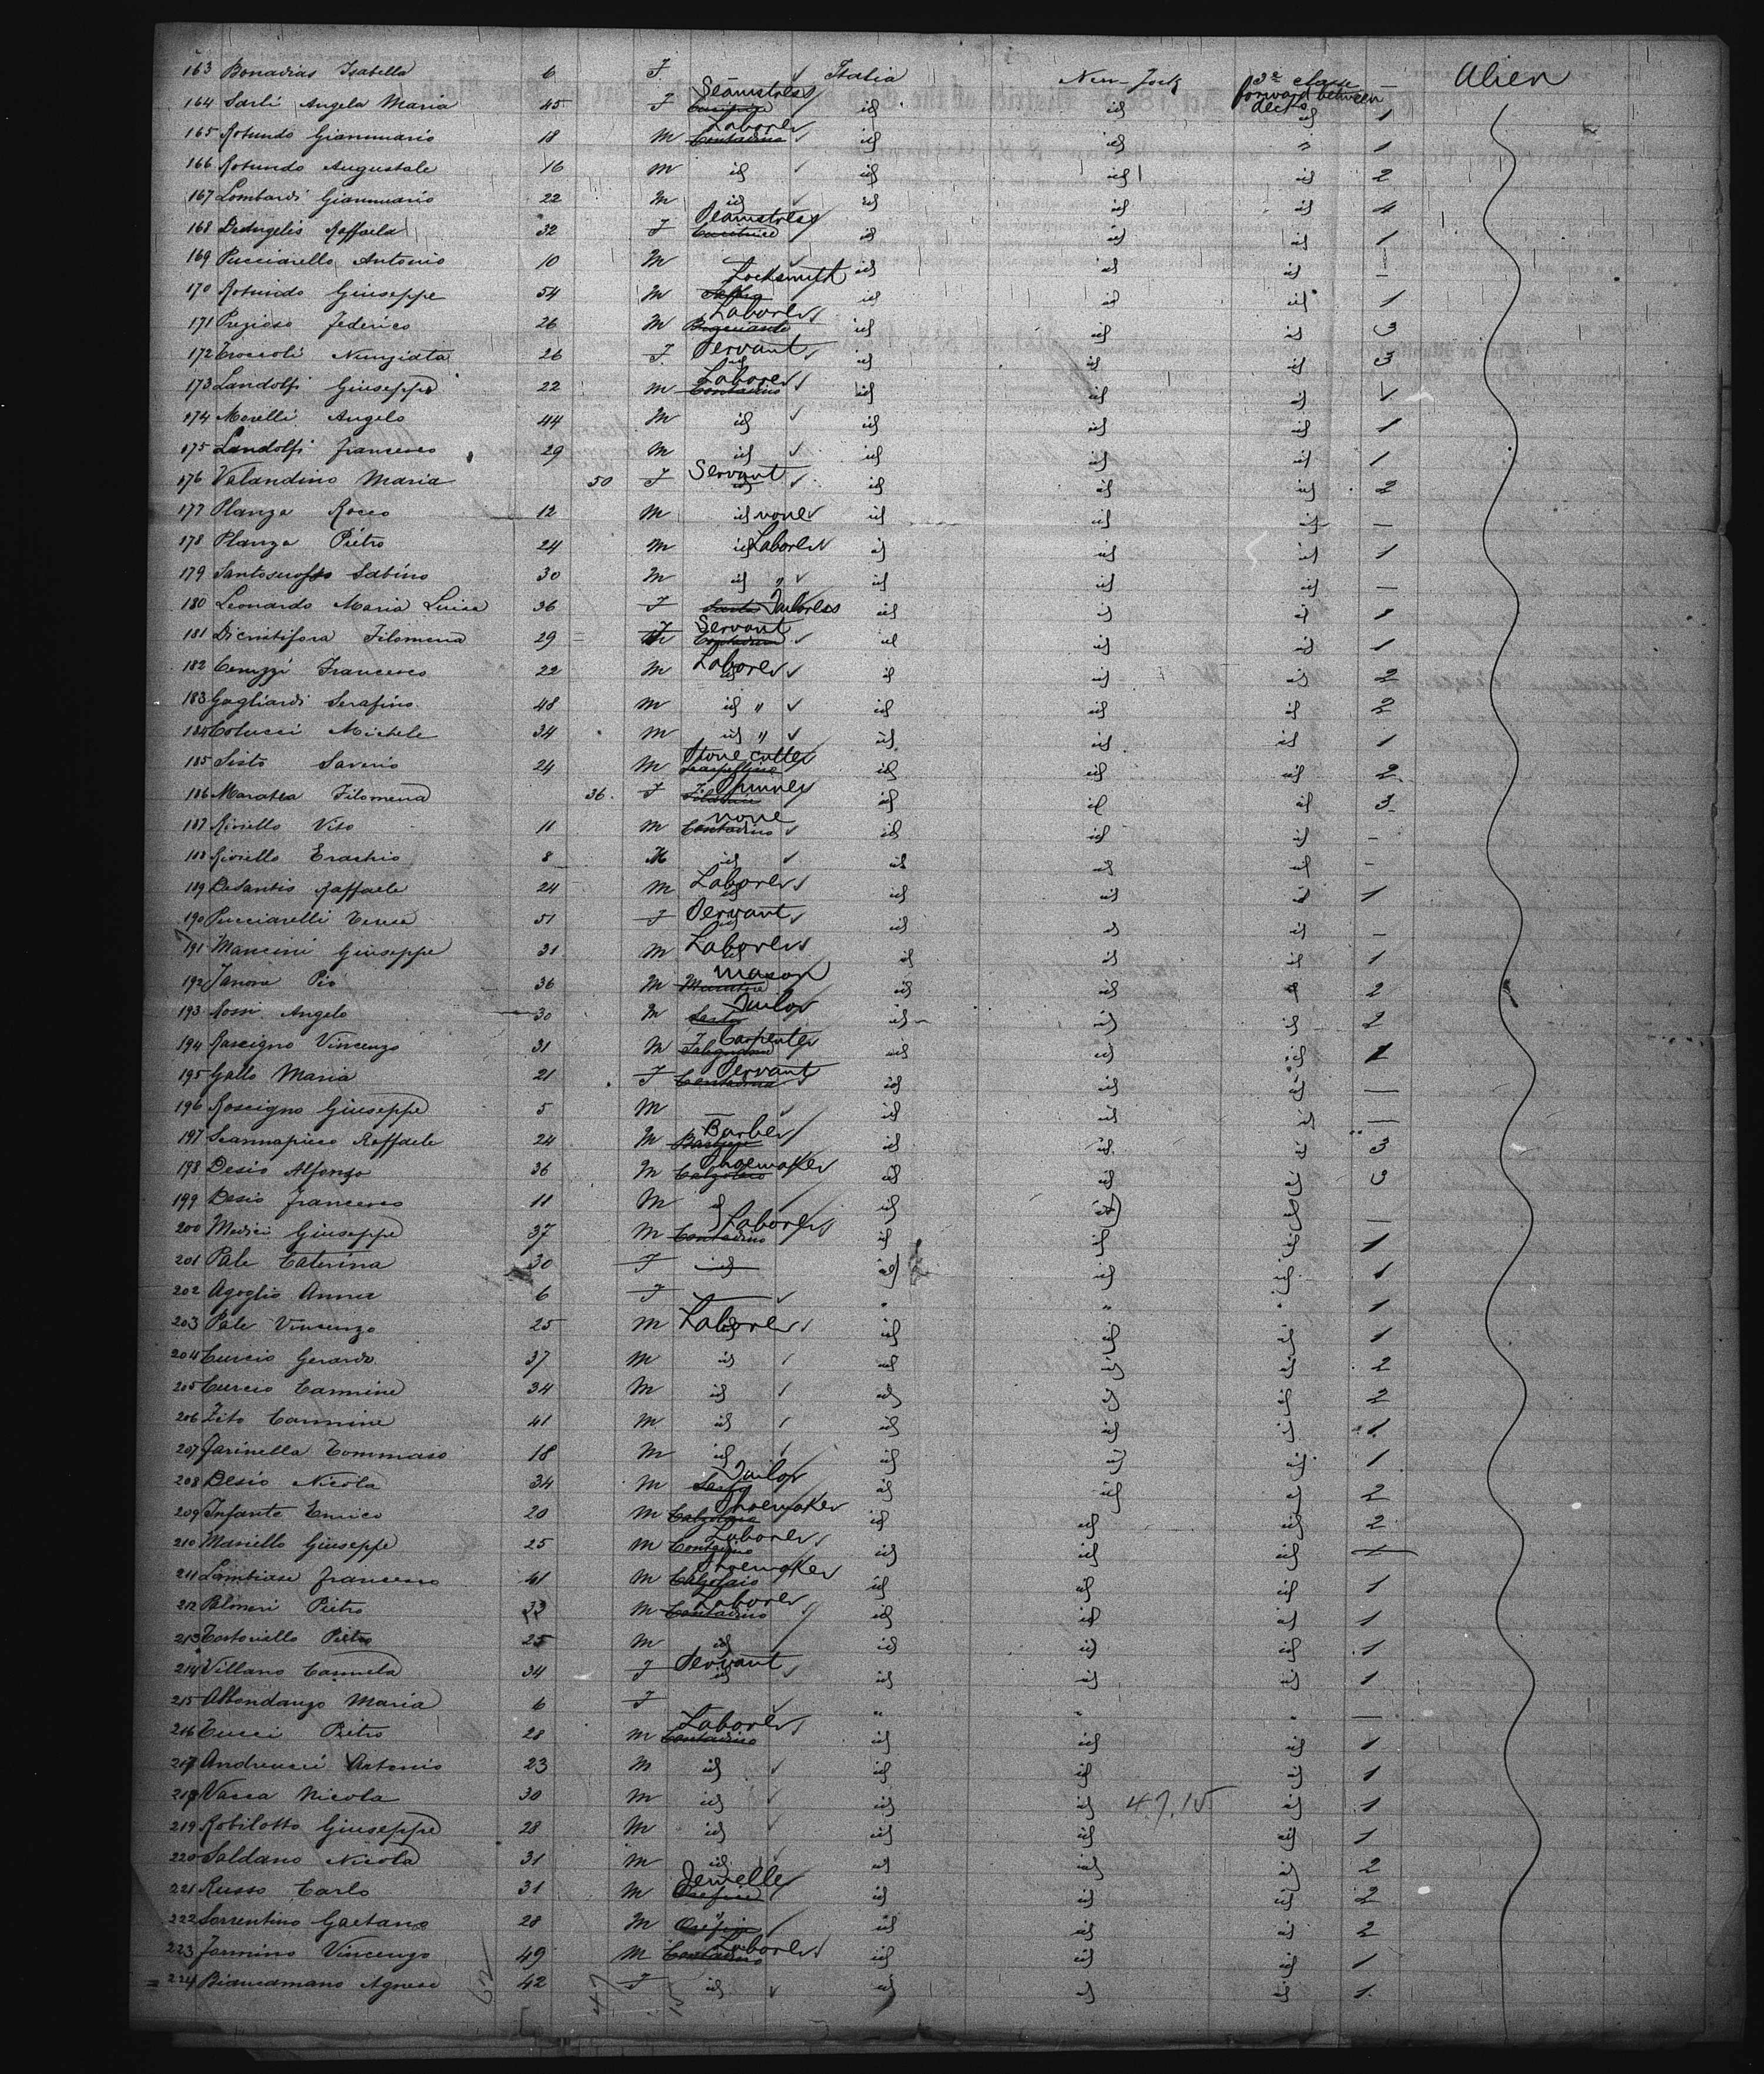 163 Bonadias Isabella 6 F. — ✓ Italia New-York 3ª classe forward between decks — Alien
164 Sarli Angela Maria 45 F Cucitrice Seamstress id id id 1
165 Rotundo Gianuario 18 M Contadino Laborer id id " 1
166 Rotundo Augustale 16 M id ✓ id id id 2
167 Lombardi Gianuario 22 M id ✓ id id id 4
168 DeAngelis Raffaela 32 F Cucitrice Seamstress id id id 1
169 Pucciarello Antonio 10 M ✓ id id id —
170 Rotundo Giuseppe 54 M Locksmith id id id 1
171 Prezioso Federico 26 M Laborer id id id 3
172 Croccoli Nunziata 26 F id Servant ✓ id id id 3
173 Landolfi Giuseppe 22 M Contadino Laborer ✓ id id id 1
174 Morelli Angelo 44 M id ✓ id id id 1
175 Landolfi Francesco 29 M id ✓ id id id 1
176 Valandino Maria 50 F id Servant ✓ id id id 2
177 Planza Rocco 12 M id none ✓ id id id —
178 Planza Pietro 24 M id Laborer id id id 1
179 Sabino 30 M id " ✓ id id id —
180 Leonardo Maria Luisa 36 F Sarta Tailoress id id id 1
181 Dicristifora Filomena 29 F Contadina Servant ✓ id id id 1
182 Ceruzzi Francesco 22 M id Laborer ✓ id id id 2
183 Gagliardi Serafino 48 M id " ✓ id id id 2
184 Colucci Michele 34 M id " ✓ id id id 1
185 Sisto Saverio 24 M Scarpellino Stone cutter id id id 2
186 Maratea Filomena 36 F Filatrice Spinner id id id 3
187 Riviello Vito 11 M Contadino none ✓ id id id —
188 Riviello Erachio 8 M id ✓ id id id —
189 DeSantis Raffaele 24 M id Laborer ✓ id id id 1
190 Pucciarelli Teresa 51 F id Servant ✓ id id id —
191 Mancini Giuseppe 31 M id Laborer ✓ id id id 1
192 Janora Pio 36 M Muratore mason id id id 2
193 Rossi Angelo 30 M Sarto Tailor id id id 2
194 Rascigno Vincenzo 31 M Falegname Carpenter id id id
195 Gallo Maria 21 F Contadina Servant id id id —
196 Roscigno Giuseppe 5 M — ✓ id id id —
197 Scannapieco Raffaele 24 M Barbiere Barber id id id 3
198 Desio Alfonzo 36 M Calzolaio Shoemaker id id id 3
199 Desio Francesco 11 M id id id id —
200 Medici Giuseppe 37 M Contadino Laborer id id id 1
201 Pale Caterina 30 F id id id id 1
202 Agoglio Anna 6 F — ✓ " " " 1
203 Pale Vincenzo 25 M id Laborer ✓ id id id 1
204 Curcio Gerardo 37 M id ✓ id id id 2
205 Curcio Carmine 34 M id ✓ id id id 2
206 Zito Carmine 41 M id ✓ id id id 1
207 Farinella Tommaso 18 M id ✓ id id id 1
208 Desio Nicola 34 M Sarto Tailor id id id 2
209 Infante Enrico 20 M Calzolaio Shoemaker id id id 2
210 Mariello Giuseppe 25 M Contadino Laborer id id id
211 Lambiase Francesco 41 M Calzolaio Shoemaker id id id 1
212 Palmeri Pietro 33 M Contadino Laborer id id id 1
213 Tortoriello Pietro 25 M id id id id 1
214 Villano Carmela 34 F id Servant ✓ id id id 1
215 Abbondanzo Maria 6 F ✓ " " " —
216 Tucci Pietro 28 M Contadino Laborer id id id 1
217 Andreucci Antonio 23 M id ✓ id id id 1
218 Vacca Nicola 30 M id ✓ id id 47.15 id 1
219 Robilotto Giuseppe 28 M id ✓ id id id 1
220 Saldano Nicola 31 M id ✓ id id id 2
221 Russo Carlo 31 M Orefice Jeweller id id id 2
222 Sorrentino Gaetano 28 M Orefice " ✓ id id id 2
223 Jannino Vincenzo 49 M Contadino Laborer id id id 1
224 Biancamano Agnese 42 F id ✓ id id id 1
62 47 15